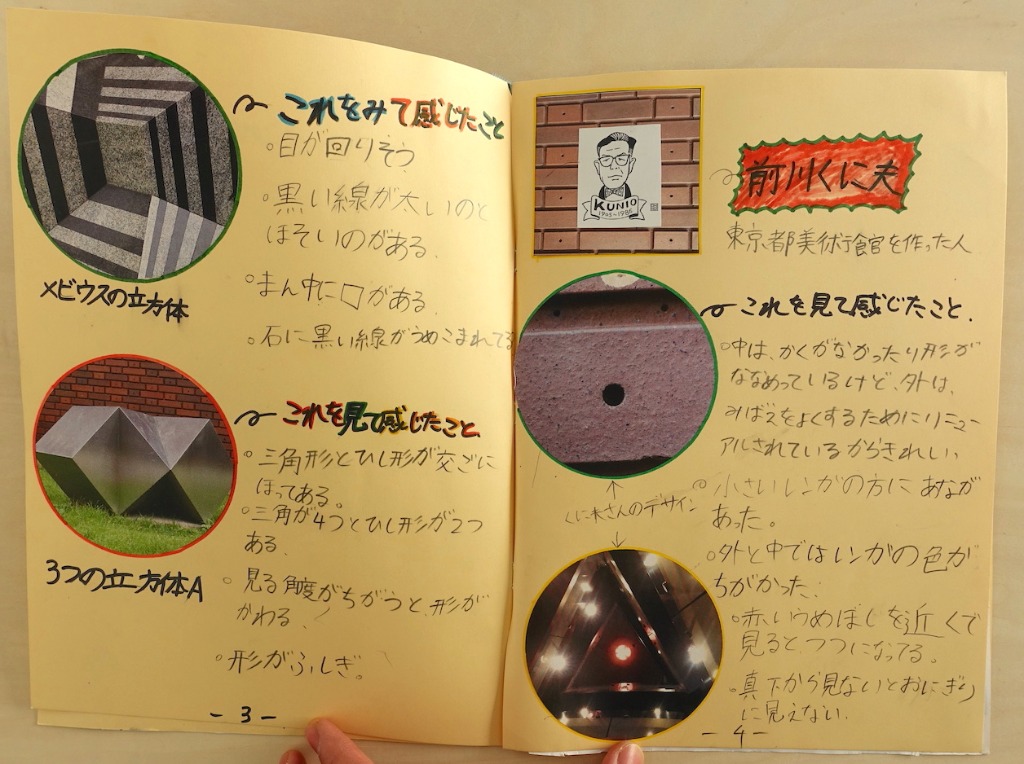 これをみて感じたこと
。目が回りそう
。黒い線が太いのと
ほそいのがある.
。まん中に口がある.
。石に黒い線がうめこまれてる
メビウスの立方体
これを見て感じたこと
。三角形とひし形が交ごに
ほってある。
。三角が4つとひし形が2つ
ある.
。見る角度がちがうと、形が
かわる.
。形がふしぎ。
3つの立方体A
-3-
KUNIO
1905~1986
前川くに夫
東京都美術館を作った人
これを見て感じたこと.
。中は、かくがなかったり形が
ななめっているけど、外は、
みばえをよくするためにリニュー
アルされているからきれい。
。小さいレンガの方にあなが
あった。
くに夫さんのデザイン
。外と中ではレンガの色が
ちがかった.
。赤いうめぼしを近くで
見ると、つつになってる。
。真下から見ないとおにぎり
に見えない.
-4-